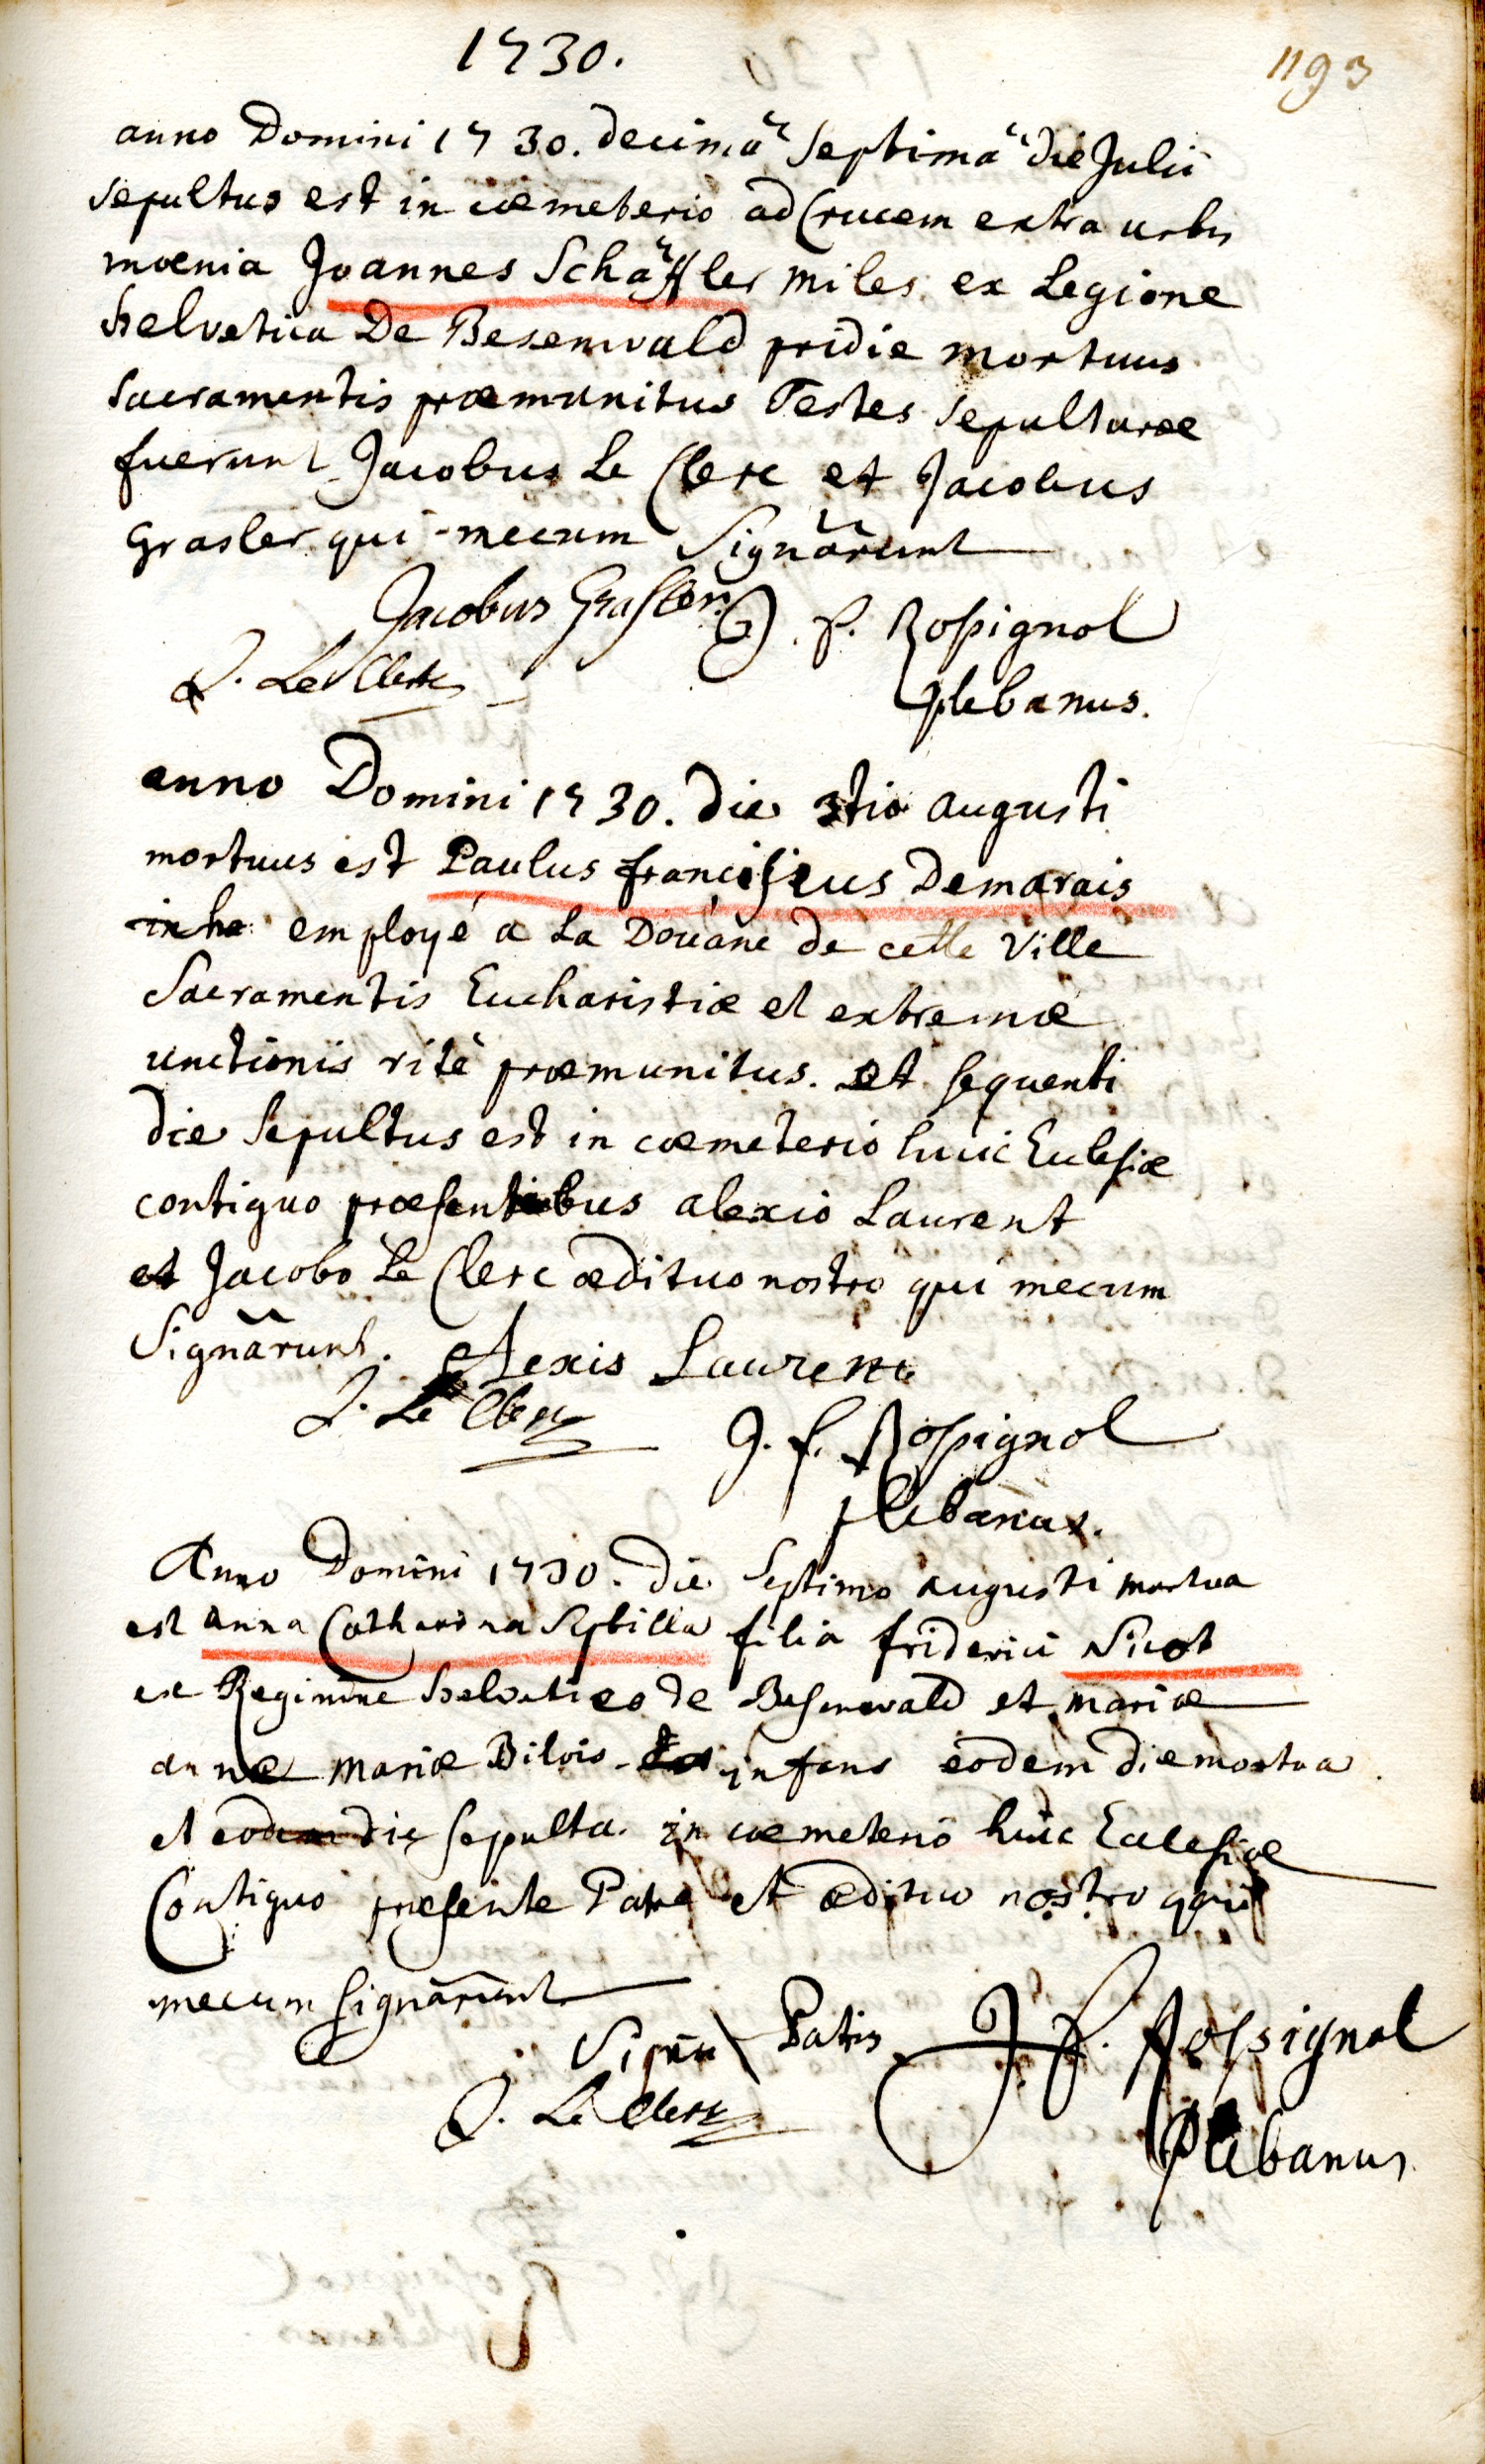 1730.
1193
anno Domini 1730. decimâ septimâ die Julii
sepultus est in cœmeterio ad Crucem extra urbis
mœnia Joannes Schäffler miles ex Legione
helvetica De Besenvald pridie mortuus
sacramentis præmunitus Testes sepulturæ
fuerunt Jacobus Le Clerc et Jacobus
Grasler qui mecum signârunt
Jacobus Grasler J. f. Rossignol
J. Le Clerc plebanus.
anno Domini 1730. die 3tio augusti
mortuus est Paulus franciscus Demarais
inha employé a La Doüane de cette Ville
Sacramentis Eucharistiæ et extremæ
unctionis ritè præmunitus. et sequenti
die sepultus est in cœmeterio huic Ecclesiæ
contiguo præsentibus alexio Laurent
et Jacobo Le Clerc ædituo nostro qui mecum
signârunt. Alexis Laurent
J. Le Clerc J. f. Rossignol
plebanus.
Anno Domini 1730. die septimo augusti mortua
est anna Catharina Sybilla filia friderici Nicot
ex Regimine helvetico de Besenvald et mariæ
annæ mariæ Bilois infans eodem die mortua
et eodem die sepulta in cœmeterio huic Ecclesiæ
Contiguo presente Patre et ædituo nostro qui
mecum signârunt
Patris J. f. Rossignol
J. Le Clerc
Plebanus